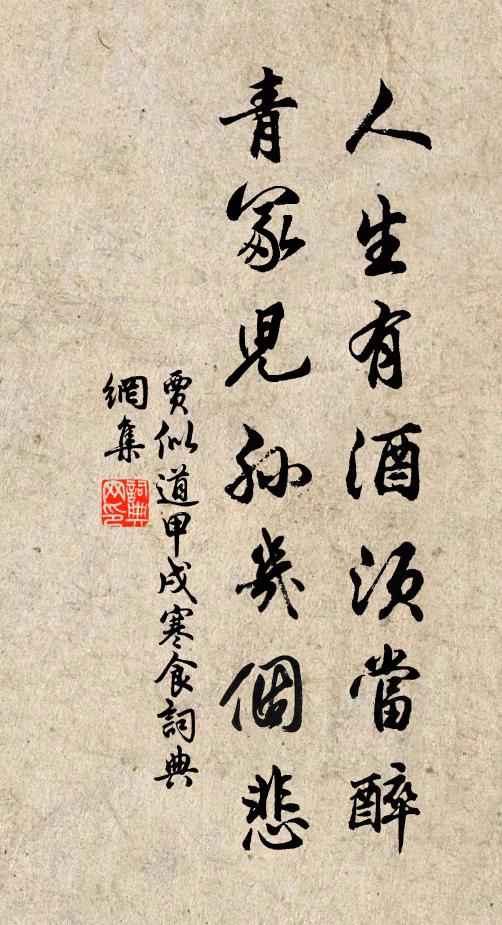 人生有酒須當醉
青冢兒孫幾個悲
賈似道甲戌寒食詞典
網集
詞典網印